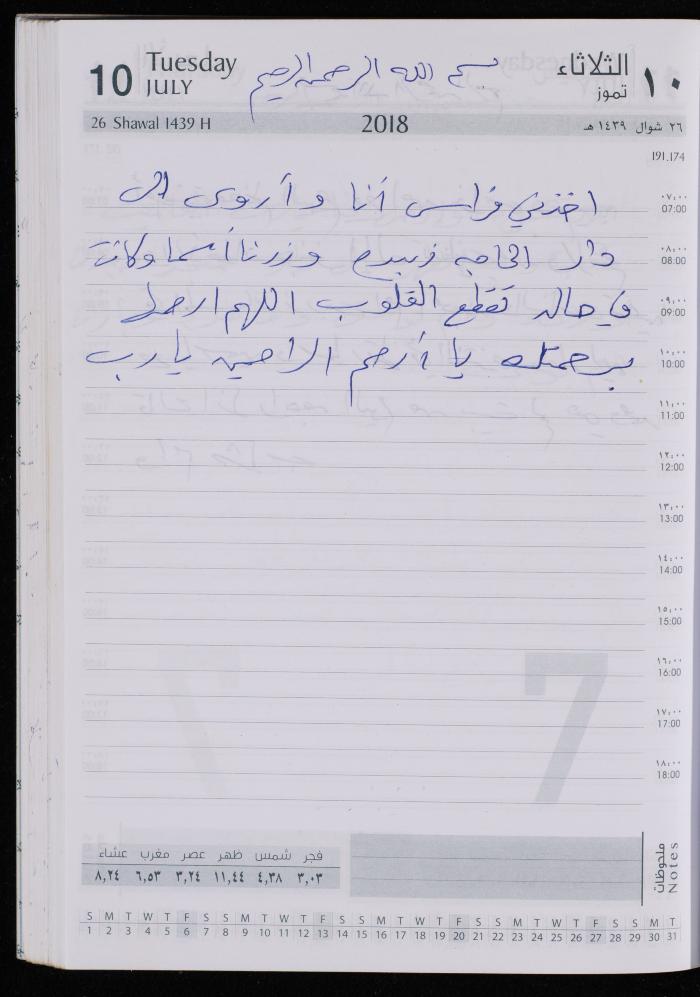 10 Tuesday JULY بسم الله الرحمن الرحيم الثلاثاء تموز ١٠
26 Shawal 1439 H 2018 ٢٦ شوال ١٤٣٩ هـ
191.174
اخذني فراس أنا و أروى الى ٠٧:٠٠ 07:00
دار الحاجه زبيده وزرنا أسما وكانت ٠٨:٠٠ 08:00
في حاله تقطع القلوب اللهم ارحمها ٠٩:٠٠ 09:00
برحمتك يا أرحم الراحمين يا رب ١٠:٠٠ 10:00
١١:٠٠ 11:00
١٢:٠٠ 12:00
١٣:٠٠ 13:00
١٤:٠٠ 14:00
١٥:٠٠ 15:00
١٦:٠٠ 16:00
١٧:٠٠ 17:00
١٨:٠٠ 18:00
7
فجر شمس ظهر عصر مغرب عشاء
٣,٠٣ ٤,٣٨ ١١,٤٤ ٣,٢٤ ٦,٥٣ ٨,٢٤
ملحوظات
Notes
S M T W T F S S M T W T F S S M T W T F S S M T W T F S S M T
1 2 3 4 5 6 7 8 9 10 11 12 13 14 15 16 17 18 19 20 21 22 23 24 25 26 27 28 29 30 31